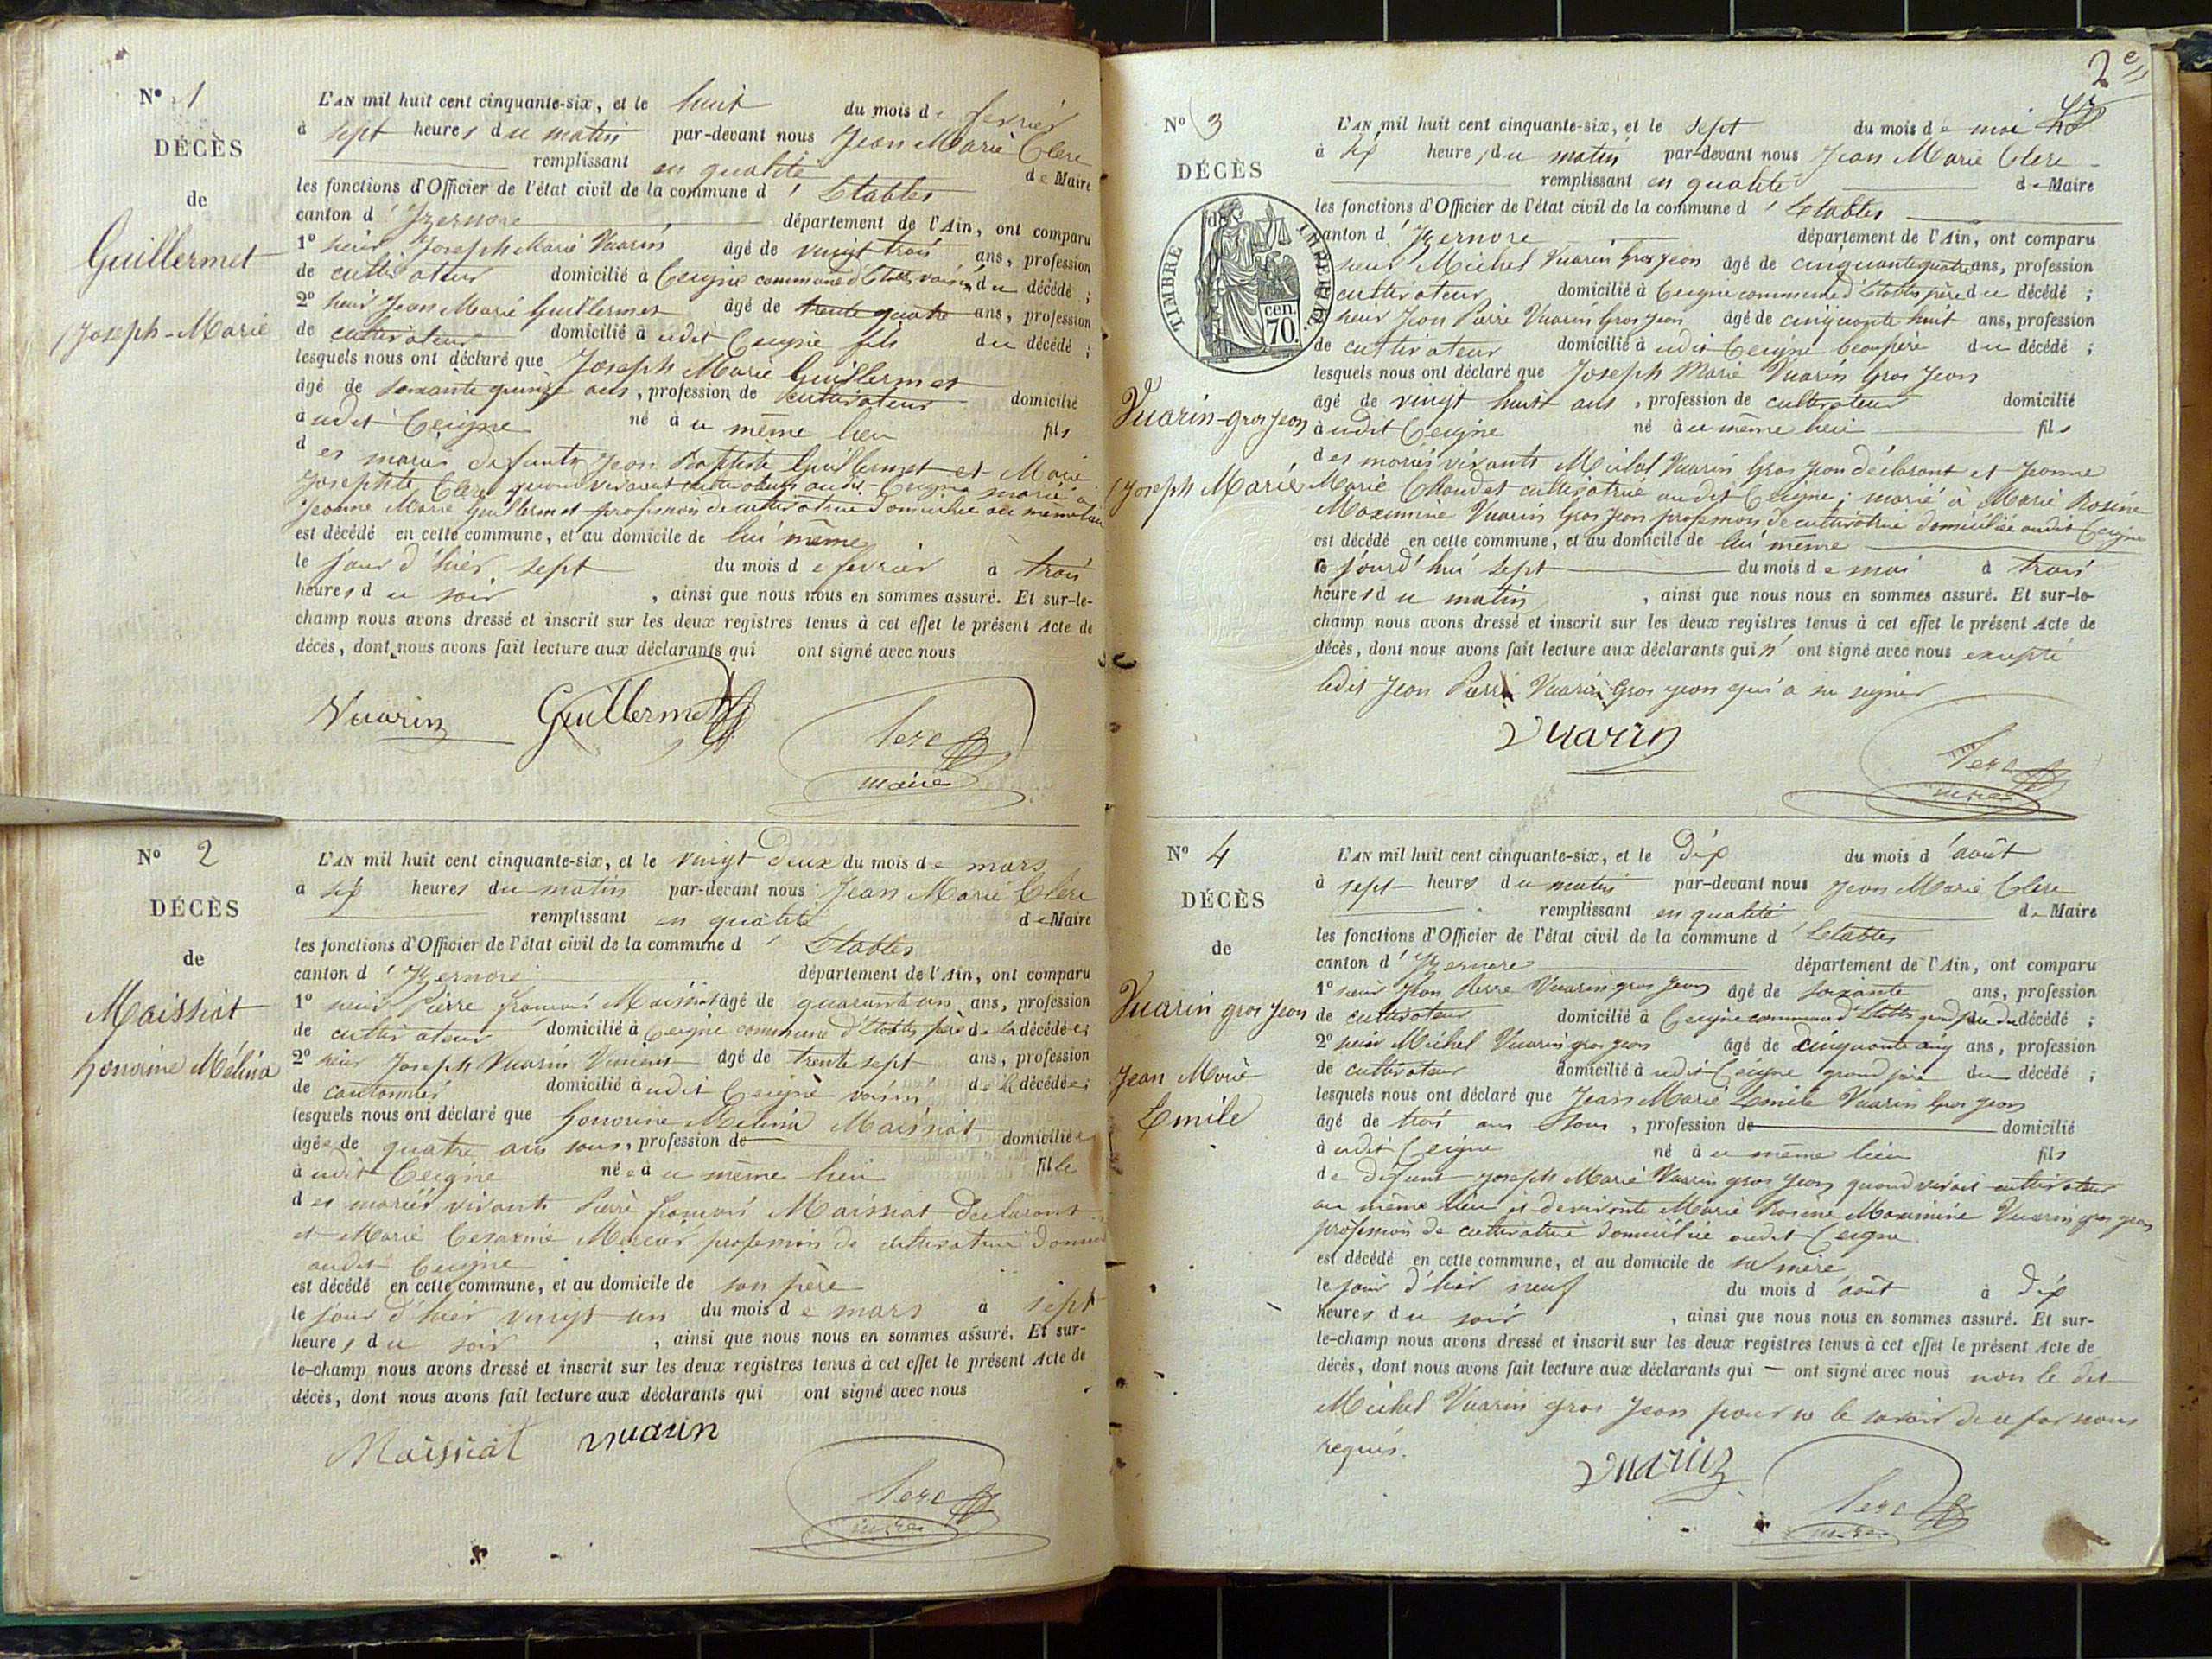 N° 1
DÉCÈS
de
Guillermet
Joseph-Marie
L'AN mil huit cent cinquante-six, et le huit du mois de fevrier
à sept heures du matin par-devant nous Jean Marie Clerc
remplissant en qualité de Maire
les fonctions d'Officier de l'état civil de la commune d' Etables
canton d' Izernore département de l'Ain, ont comparu
1° sieur Joseph Marie Vuarin âgé de vingt trois ans, profession
de cultivateur domicilié à Ceigne commune d'Etables voisin du décédé ;
2° sieur Jean Marie Guillermet âgé de trente quatre ans, profession
de cultivateur domicilié à udit Ceigne fils du décédé ;
lesquels nous ont déclaré que Joseph Marie Guillermet
âgé de soixante quinze ans, profession de cultivateur domicilié
à udit Ceigne né à u même lieu fils
des mariés defunts Jean Baptiste Guillermet et Marie
Josephte Clerc quand vivaient cultivateurs audit Ceigne marié à
Jeanne Marie Guillermet profession de cultivatrice domiciliée au même lieu
est décédé en cette commune, et au domicile de lui même
le jour d'hier sept du mois de fevrier à trois
heures du soir , ainsi que nous nous en sommes assuré. Et sur-le-
champ nous avons dressé et inscrit sur les deux registres tenus à cet effet le présent Acte de
décès, dont nous avons fait lecture aux déclarants qui ont signé avec nous
Vuarin Guillermet Clerc
maire
N° 2
DÉCÈS
de
Maissiat
honorine Mélina
L'AN mil huit cent cinquante-six, et le vingt deux du mois de mars
à six heures du matin par-devant nous Jean Marie Clerc
remplissant en qualité de Maire
les fonctions d'Officier de l'état civil de la commune d' Etables
canton d' Izernore département de l'Ain, ont comparu
1° sieur Pierre françois Maissiat âgé de quarante un ans, profession
de cultivateur domicilié à Ceigne commune d'Etables père de la décédée ;
2° sieur Joseph Vuarin Vincent âgé de trente sept ans, profession
de cantonnier domicilié à udit Ceigne voisin de la décédée ;
lesquels nous ont déclaré que honorine Melina Maissiat
âgée de quatre ans , profession de domiciliée
à udit Ceigne née à u même lieu fille
des mariés vivants Pierre françois Maissiat declarant
et Marie Cesarine profession de cultivatrice
audit Ceigne
est décédé en cette commune, et au domicile de son père
le jour d'hier vingt un du mois de mars à sept
heures du soir , ainsi que nous nous en sommes assuré. Et sur-
le-champ nous avons dressé et inscrit sur les deux registres tenus à cet effet le présent Acte de
décès, dont nous avons fait lecture aux déclarants qui ont signé avec nous
Maissiat vuarin
Clerc
maire
2e
N° 3
DÉCÈS
de
TIMBRE IMPERIAL
cen. 70.
Vuarin-gros Jean
Joseph Marie
L'AN mil huit cent cinquante-six, et le sept du mois de mai
à six heures du matin par-devant nous Jean Marie Clerc
remplissant en qualité de Maire
les fonctions d'Officier de l'état civil de la commune d' Etables
canton d' Izernore département de l'Ain, ont comparu
sieur Michel Vuarin Gros Jean âgé de cinquante quatre ans, profession
cultivateur domicilié à Ceigne commune d'Etables père du décédé ;
sieur Jean Pierre Vuarin Gros Jean âgé de cinquante huit ans, profession
de cultivateur domicilié à udit Ceigne beaupère du décédé ;
lesquels nous ont déclaré que Joseph Marie Vuarin Gros Jean
âgé de vingt huit ans , profession de cultivateur domicilié
à udit Ceigne né à u même lieu fils
des mariés vivants Michel Vuarin Gros Jean déclarant et Jeanne
Marie Chaudet cultivatrice audit Ceigne ; marié à Marie Rosine
Maximine Vuarin Gros Jean profession de cultivatrice domiciliée audit Ceigne
est décédé en cette commune, et au domicile de lui même
le jourd'hui sept du mois de mai à trois
heures du matin , ainsi que nous nous en sommes assuré. Et sur-le-
champ nous avons dressé et inscrit sur les deux registres tenus à cet effet le présent Acte de
décès, dont nous avons fait lecture aux déclarants qui n' ont signé avec nous excepté
ledit Jean Pierre Vuarin Gros Jean qui a su signer
Vuarin
Clerc
maire
N° 4
DÉCÈS
de
Vuarin gros Jean
Jean Marie
Emile
L'AN mil huit cent cinquante-six, et le dix du mois d'août
à sept heures du matin par-devant nous Jean Marie Clerc
remplissant en qualité de Maire
les fonctions d'Officier de l'état civil de la commune d' Etables
canton d' Izernore département de l'Ain, ont comparu
1° sieur Jean Pierre Vuarin gros Jean âgé de soixante ans, profession
de cultivateur domicilié à Ceigne commune d'Etables grand père du décédé ;
2° sieur Michel Vuarin gros Jean âgé de cinquante cinq ans, profession
de cultivateur domicilié à udit Ceigne grand père du décédé ;
lesquels nous ont déclaré que Jean Marie Emile Vuarin Gros Jean
âgé de trois ans , profession de domicilié
à udit Ceigne né à u même lieu fils
de Défunt Joseph Marie Vuarin gros Jean quand vivait cultivateur
au même lieu et de vivante Marie Rosine Maximine Vuarin gros Jean
profession de cultivatrice domiciliée audit Ceigne
est décédé en cette commune, et au domicile de sa mère
le jour d'hier neuf du mois d'août à dix
heures du soir , ainsi que nous nous en sommes assuré. Et sur-
le-champ nous avons dressé et inscrit sur les deux registres tenus à cet effet le présent Acte de
décès, dont nous avons fait lecture aux déclarants qui — ont signé avec nous non le dit
Michel Vuarin gros Jean pour ne le savoir de ce par nous
requis.
Vuarin
Clerc
maire